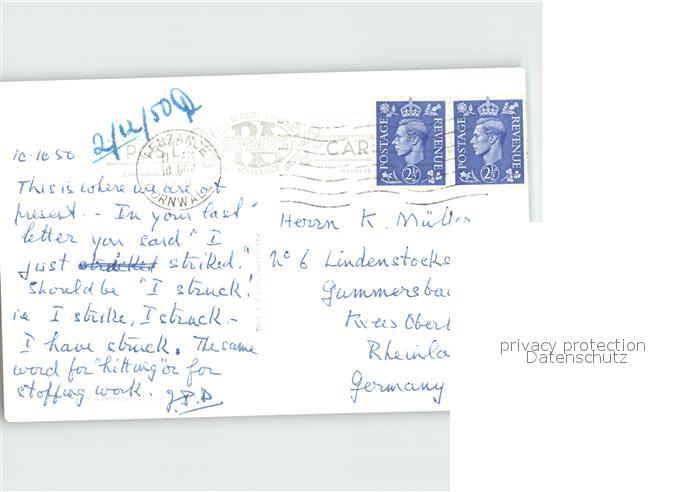 2/12/50
10.10.50
PENZANCE
CORNWALL
SERIES
CAR
POSTAGE REVENUE
2½
POSTAGE REVENUE
2½
This is where we are at
present. - In your last
letter you said "I
just striked."
Should be "I struck!
ie I strike, I struck. -
I have struck. The same
word for "hitting" or for
stopping work. J.P.D
Herrn K. Müller
No 6 Lindenstocks
Gummersbac
Kreis Oberb
Rheinla
Germany
privacy protection
Datenschutz